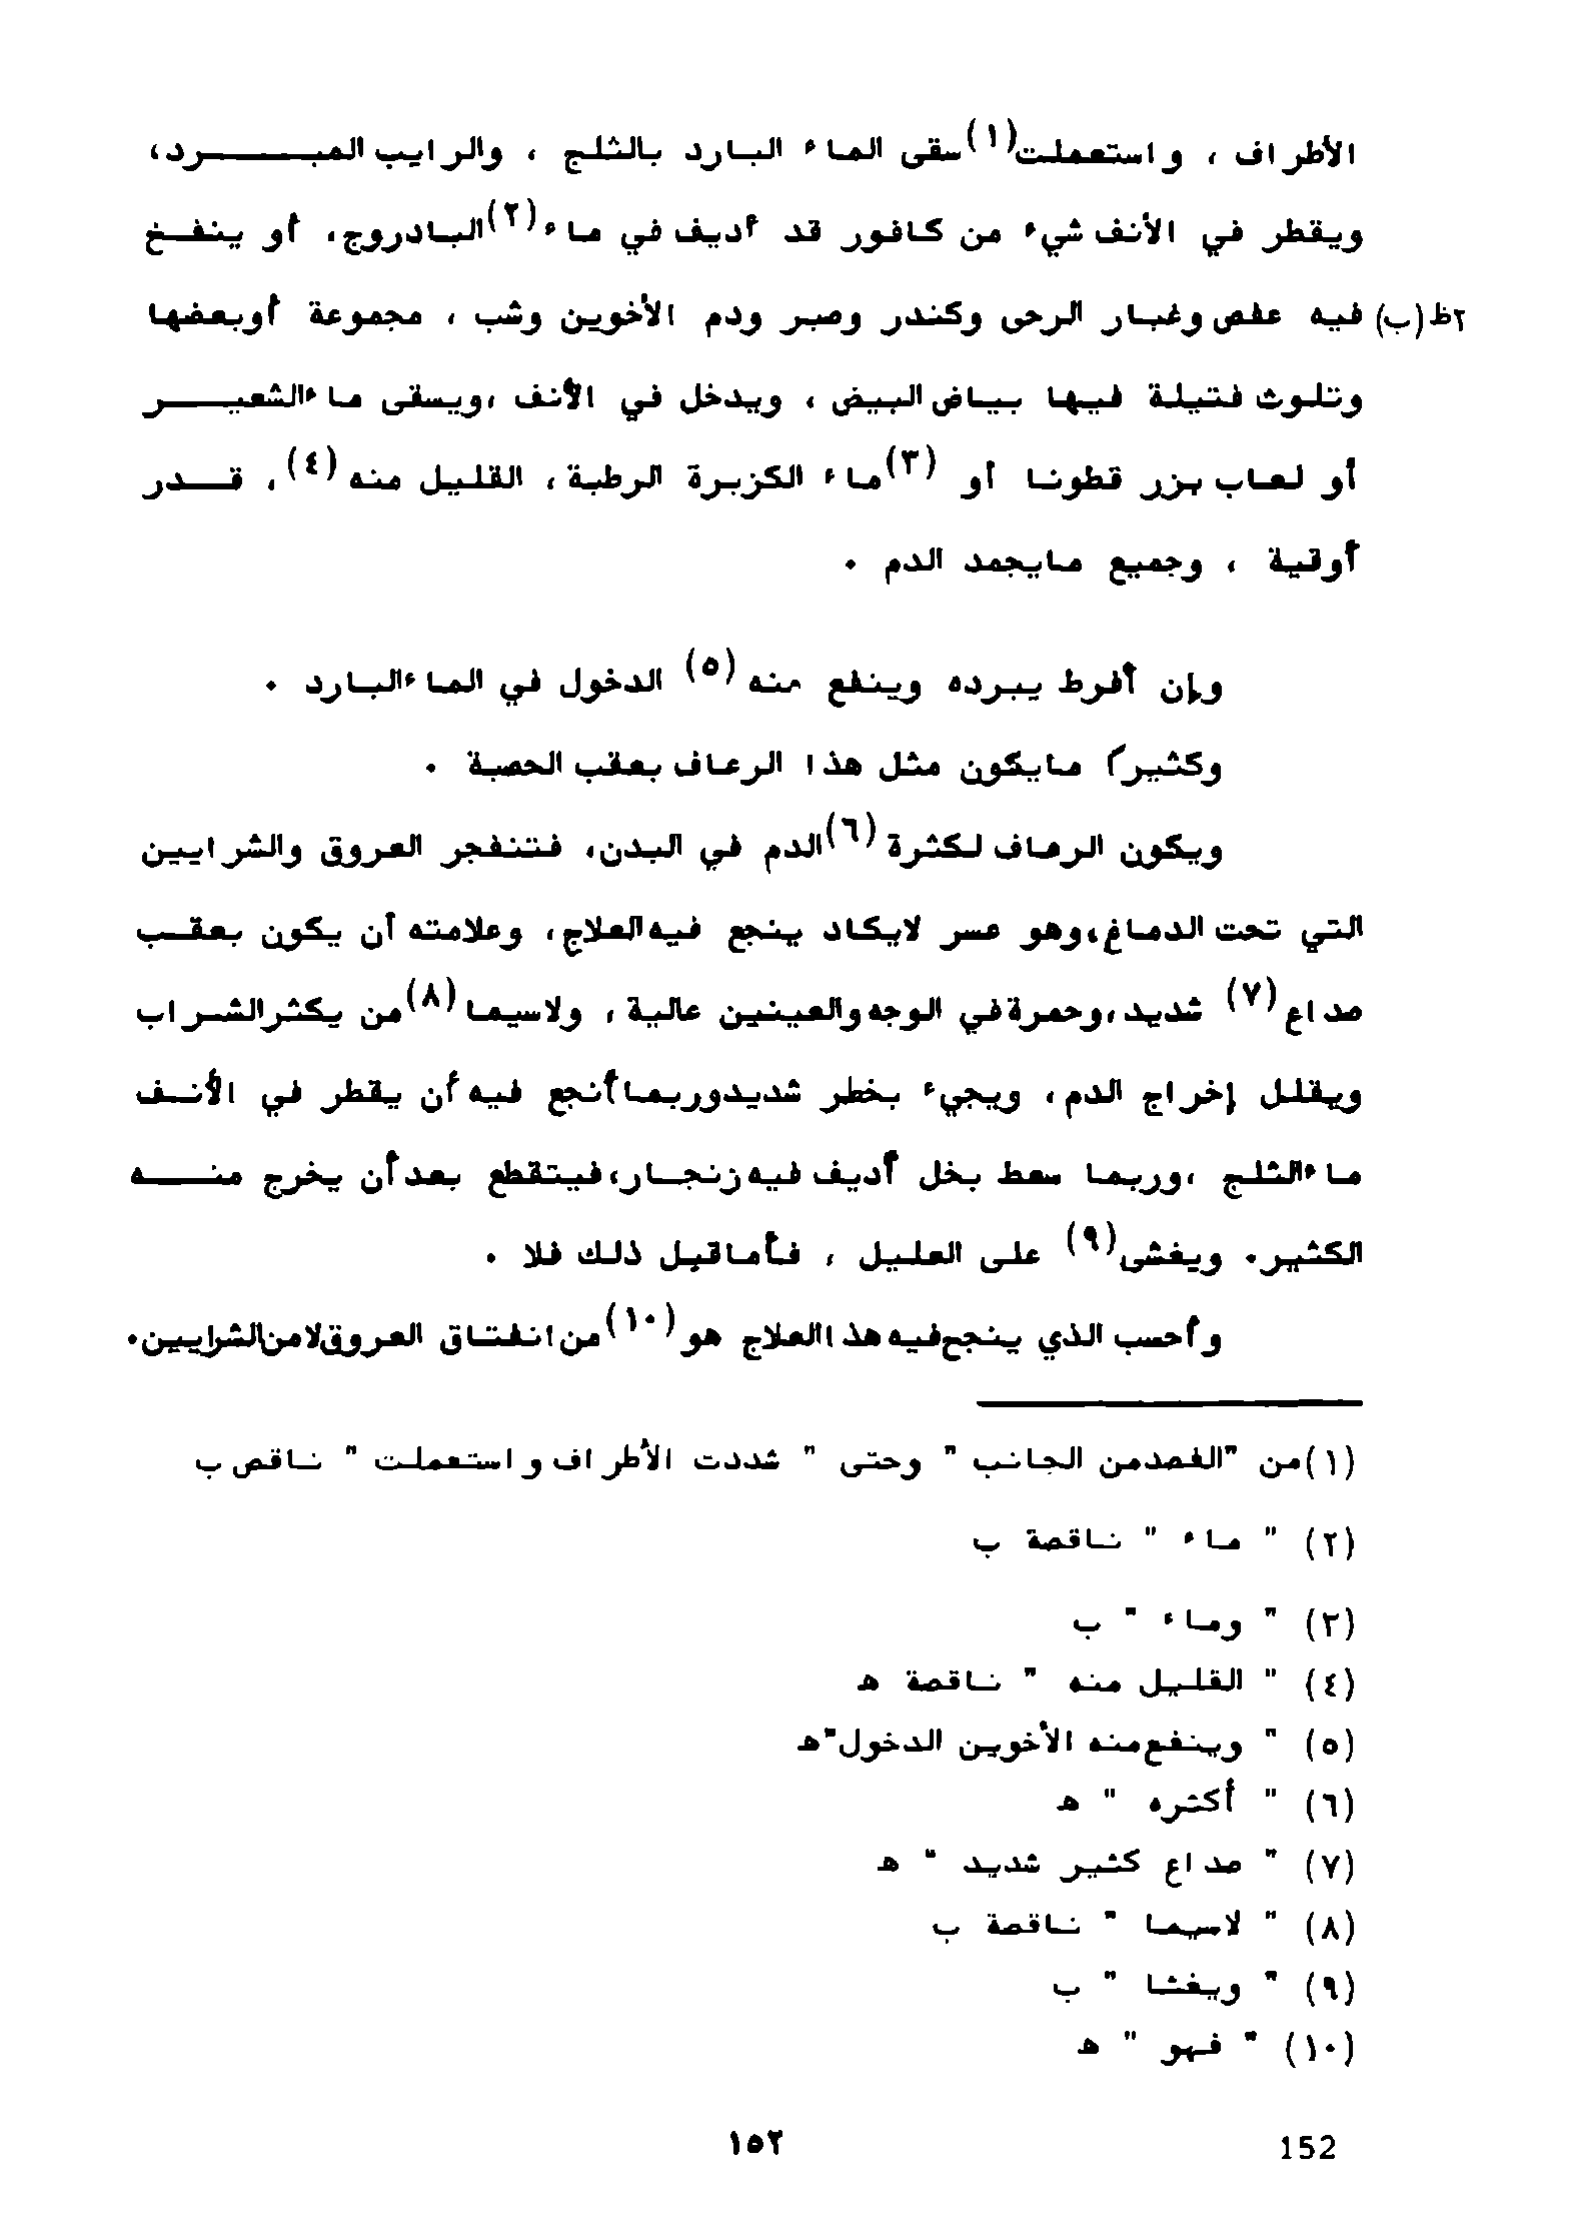 الأطراف ، واستعملت(١)سقى الماء البارد بالثلج ، والرايب المبرد،
ويقطر في الأنف شيء من كافور قد أديف في ماء(٢)البادروج، أو ينفخ
٢ظ(ب) فيه عفص وغبار الرحى وكندر وصبر ودم الأخوين وشب ، مجموعة أوبعضها
وتلوث فتيلة فيها بياض البيض ، ويدخل في الأنف ،ويسقى ماءالشعير
أو لعاب بزر قطونا أو (٣)ماء الكزبرة الرطبة ، القليل منه (٤)، قدر
أوقية ، وجميع مايجمد الدم .
وإن أفرط يبرده وينفع منه (٥) الدخول في الماءالبارد .
وكثيرا مايكون مثل هذا الرعاف بعقب الحصبة .
ويكون الرعاف لكثرة (٦)الدم في البدن، فتنفجر العروق والشرايين
التي تحت الدماغ،وهو عسر لايكاد ينجع فيه العلاج، وعلامته أن يكون بعقب
صداع (٧) شديد،وحمرةفي الوجه والعينين عالية ، ولاسيما (٨)من يكثرالشراب
ويقلل إخراج الدم ، ويجيء بخطر شديدوربما أنجع فيه أن يقطر في الأنف
ماءالثلج ،وربما سعط بخل أديف فيه زنجار،فيتقطع بعدأن يخرج منه
الكثير. ويغشى(٩) على العليل ، فأماقبل ذلك فلا .
وأحسب الذي ينجح فيه هذاالعلاج هو (١٠)من انفتاق العروق لامن الشرايين.
(١)من "الفصدمن الجانب " وحتى " شددت الأطراف واستعملت " ناقص ب
(٢) " ماء " ناقصة ب
(٣) " وماء " ب
(٤) " القليل منه " ناقصة ه
(٥) " وينفع منه الأخوين الدخول"ه
(٦) " أكثره " ه
(٧) " صداع كثير شديد " ه
(٨) " لاسيما " ناقصة ب
(٩) " ويغشا " ب
(١٠) " فهو " ه
١٥٢
152